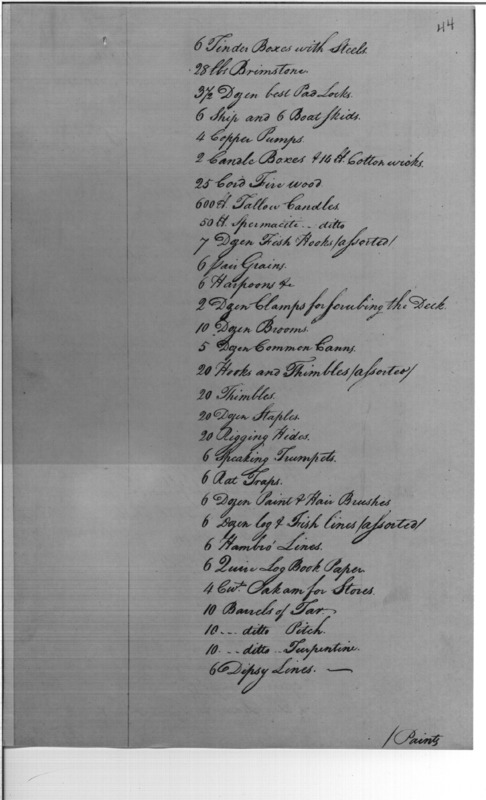 44
6 Tinder Boxes with Steels.
28 lbs Brimstone
3½ Dozen best Pad Locks.
6 Ship and 6 Boat Skids.
4 Copper Pumps.
2 Candle Boxes & 14 lt. Cotton wicks.
25 Cord Fire wood
600 lt. Tallow Candles
50 lt. Spermaciti -- ditto
7 Dozen Fish Hooks /assorted/
6 pair Grains.
6 Harpoons &c
2 Dozen Clamps for scrubing the Deck.
10 Dozen Brooms.
5 Dozen Common Canns.
20 Hooks and Thimbles /assorted/
20 Thimbles.
20 Dozen Staples.
20 Rigging Hides.
6 Speaking Trumpets.
6 Rat Traps.
6 Dozen Paint & Hair Brushes
6 Dozen log & Fish lines /assorted/
6 Hambro' Lines.
6 Quire Log Book Paper
4 Cwt. Oakam for Stores.
10 Barrels of Tar
10 --- ditto Pitch.
10 --- ditto -- Turpentine.
6 Dipsy Lines. —
/Paints